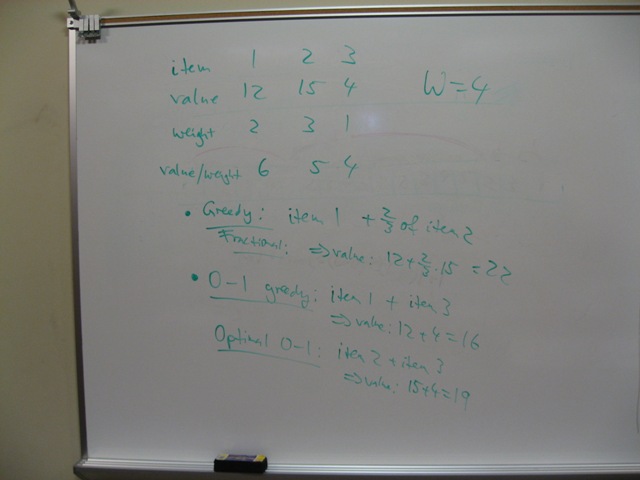 item 1 2 3
value 12 15 4 W=4
weight 2 3 1
value/weight 6 5 4
• Greedy: item 1 + 2/3 of item 2
Fractional: ⇒ value: 12+2/3·15 = 22
• 0-1 greedy: item 1 + item 3
⇒ value: 12+4=16
Optimal 0-1: item 2 + item 3
⇒ value: 15+4=19